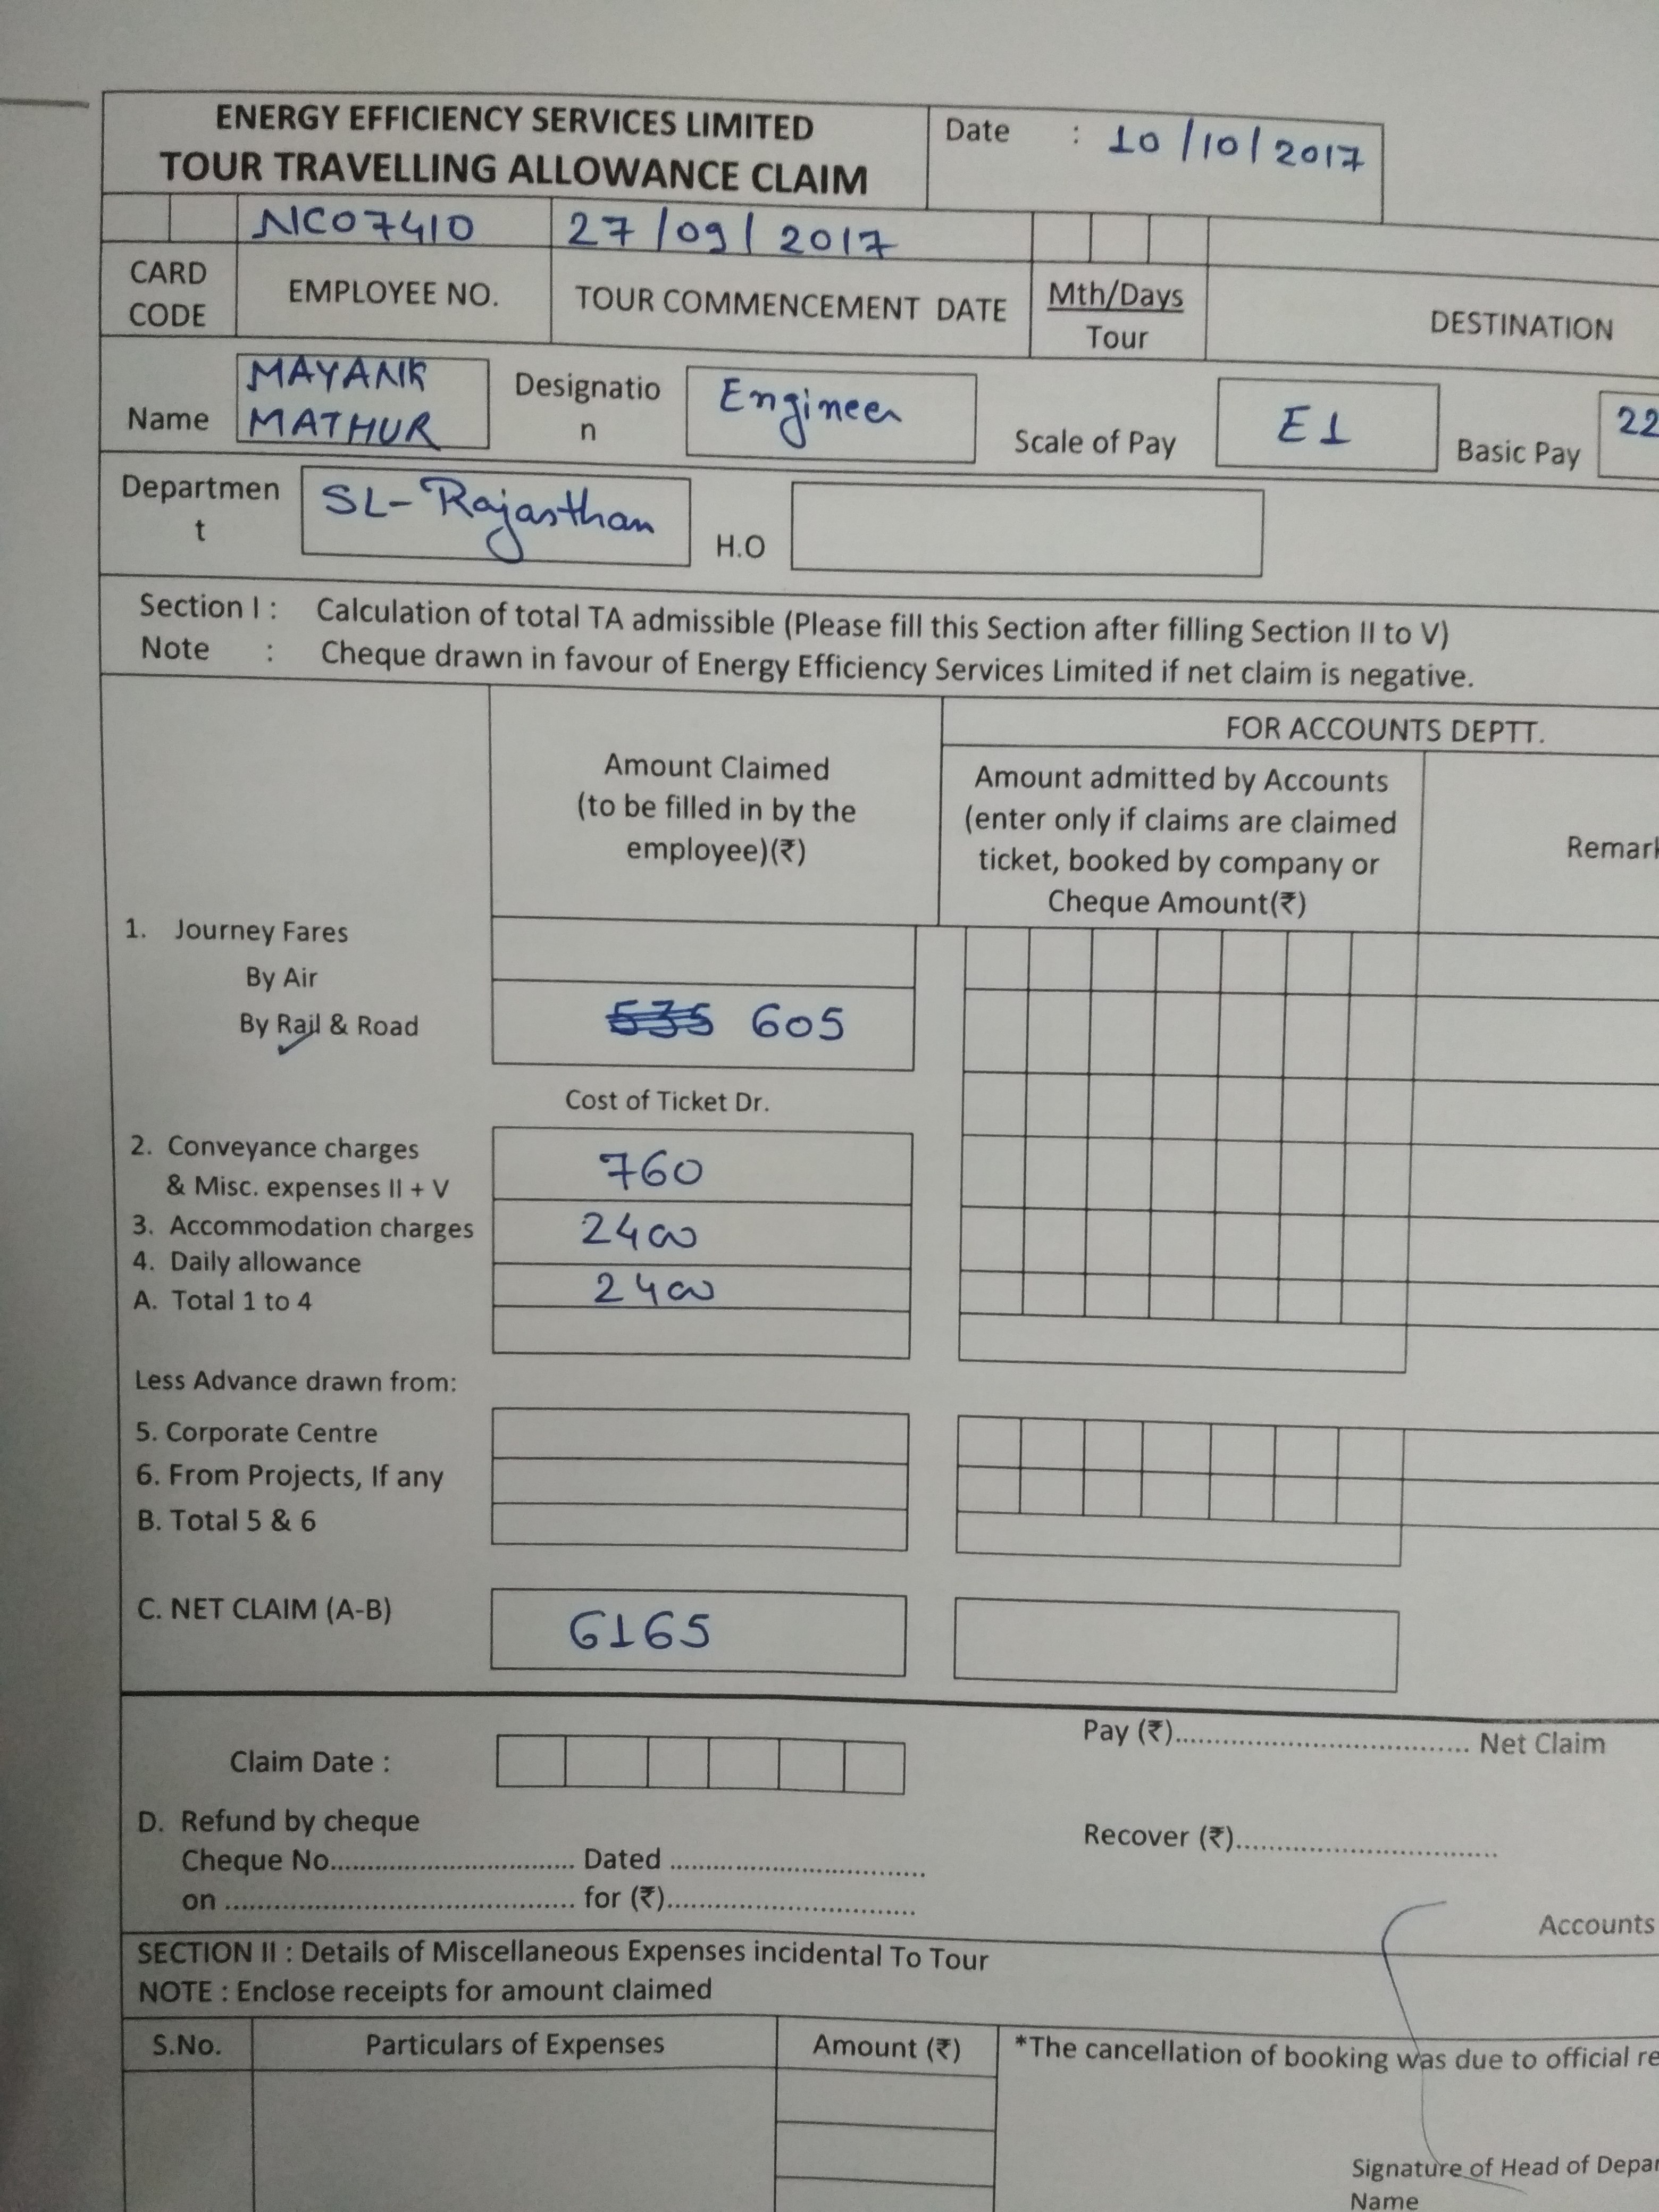 ENERGY EFFICIENCY SERVICES LIMITED
TOUR TRAVELLING ALLOWANCE CLAIM
Date : 10/10/2017
NC07410 27/09/2017
CARD CODE EMPLOYEE NO. TOUR COMMENCEMENT DATE Mth/Days Tour DESTINATION
Name MAYANK MATHUR Designation Engineer Scale of Pay E1 Basic Pay 22
Department SL-Rajasthan H.O
Section I : Calculation of total TA admissible (Please fill this Section after filling Section II to V)
Note : Cheque drawn in favour of Energy Efficiency Services Limited if net claim is negative.
FOR ACCOUNTS DEPTT.
Amount Claimed
(to be filled in by the
employee)(₹)
Amount admitted by Accounts
(enter only if claims are claimed
ticket, booked by company or
Cheque Amount(₹)
Remark
1. Journey Fares
By Air
By Rail & Road 535 605
Cost of Ticket Dr.
2. Conveyance charges
& Misc. expenses II + V 760
3. Accommodation charges 2400
4. Daily allowance 2400
A. Total 1 to 4
Less Advance drawn from:
5. Corporate Centre
6. From Projects, If any
B. Total 5 & 6
C. NET CLAIM (A-B) 6165
Pay (₹)........................................ Net Claim
Claim Date :
D. Refund by cheque
Recover (₹)...................................
Cheque No.................................. Dated ...................................
on ................................................. for (₹)..................................
Accounts
SECTION II : Details of Miscellaneous Expenses incidental To Tour
NOTE : Enclose receipts for amount claimed
S.No. Particulars of Expenses Amount (₹) *The cancellation of booking was due to official re
Signature of Head of Depar
Name